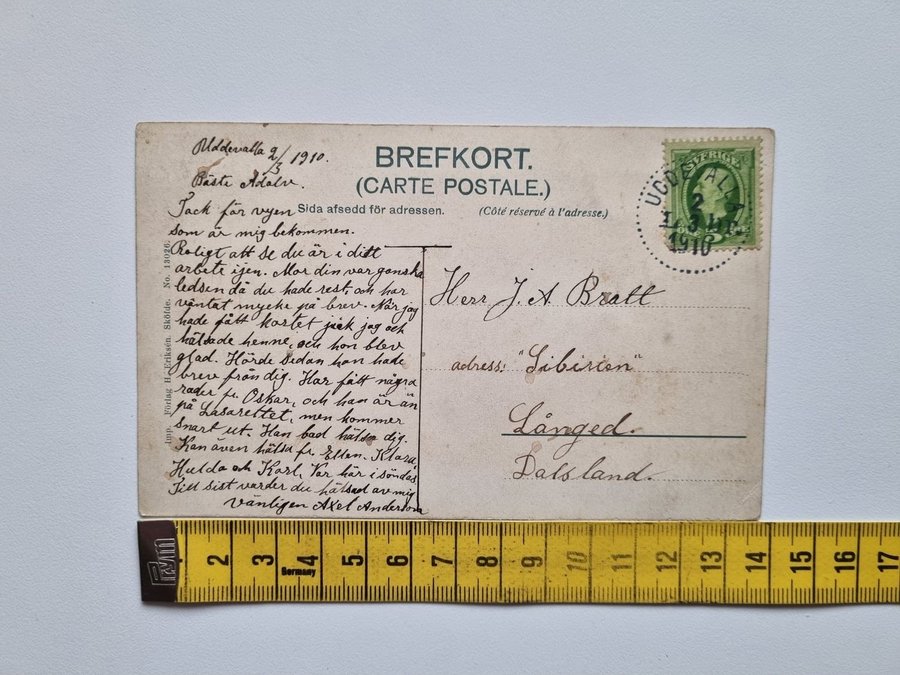 Uddevalla 2/3 1910.
Bäste Adolv.
Tack för vyen
som är mig bekommen.
Roligt att se du är i ditt
arbete igen. Mor din var ganska
ledsen då du hade rest, och har
väntat mycke på brev. När jag
hade fått kortet jick jag och
hälsade henne, och hon blev
glad. Hörde sedan hon hade
brev från dig. Har fått några
rader fr. Oskar, och han är än
på Lasarettet, men kommer
snart ut. Han bad hälsa dig.
Kan även hälsa fr. Ellen. Klara,
Hulda och Karl, Var här i söndas
Till sist varder du hälsad av mig
vänligen Axel Anderson
BREFKORT.
(CARTE POSTALE.)
Sida afsedd för adressen. (Côté réservé à l'adresse.)
Herr J. A. Bratt
adress: "Sibirien"
Långed.
Dalsland.
Imp. Förlag H. Eriksen. Sköfde. No. 13026.
SVERIGE
UDDEVALLA
2
3
1910
2 3 4 5 6 7 8 9 10 11 12 13 14 15 16 17
Germany